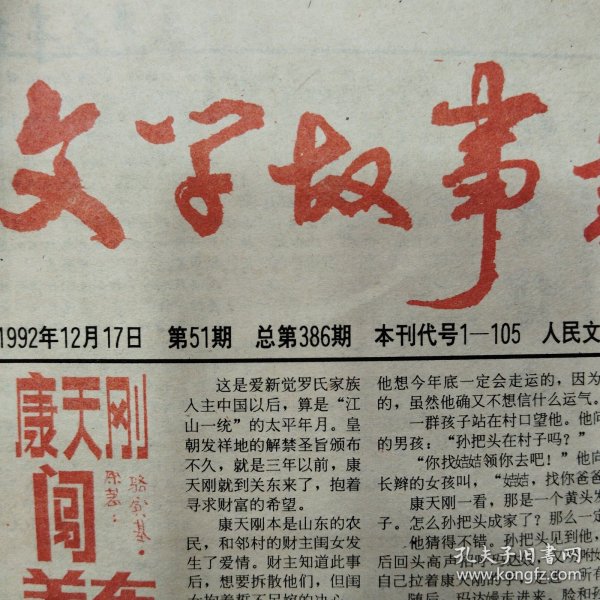 文学故事
1992年12月17日 第51期 总第386期 本刊代号1—105 人民文
康天刚
闯
关东
这是爱新觉罗氏家族
入主中国以后，算是“江
山一统”的太平年月。皇
朝发祥地的解禁圣旨颁布
不久，就是三年以前，康
天刚就到关东来了，抱着
寻求财富的希望。
康天刚本是山东的农
民，和邻村的财主闺女发
生了爱情。财主知道此事
后，想要拆散他们，但闺
女抱着誓不另嫁的决心，
他想今年底一定会走运的，因为
的，虽然他确又不想信什么运气。
一群孩子站在村口望他。他向
的男孩：“孙把头在村子吗？”
“你找姞姞领你去吧！”他向
长辫的女孩叫，“姞姞，找你爸爸
康天刚一看，那是一个黄头发
子。怎么孙把头成家了？那么一定
他猜得不错。孙把头见到他，
后回头高声
自己拉着康天刚的手，走进
随后，玛达嫚走进来。脸和孙
孔夫子旧书网
www.kongfz.com